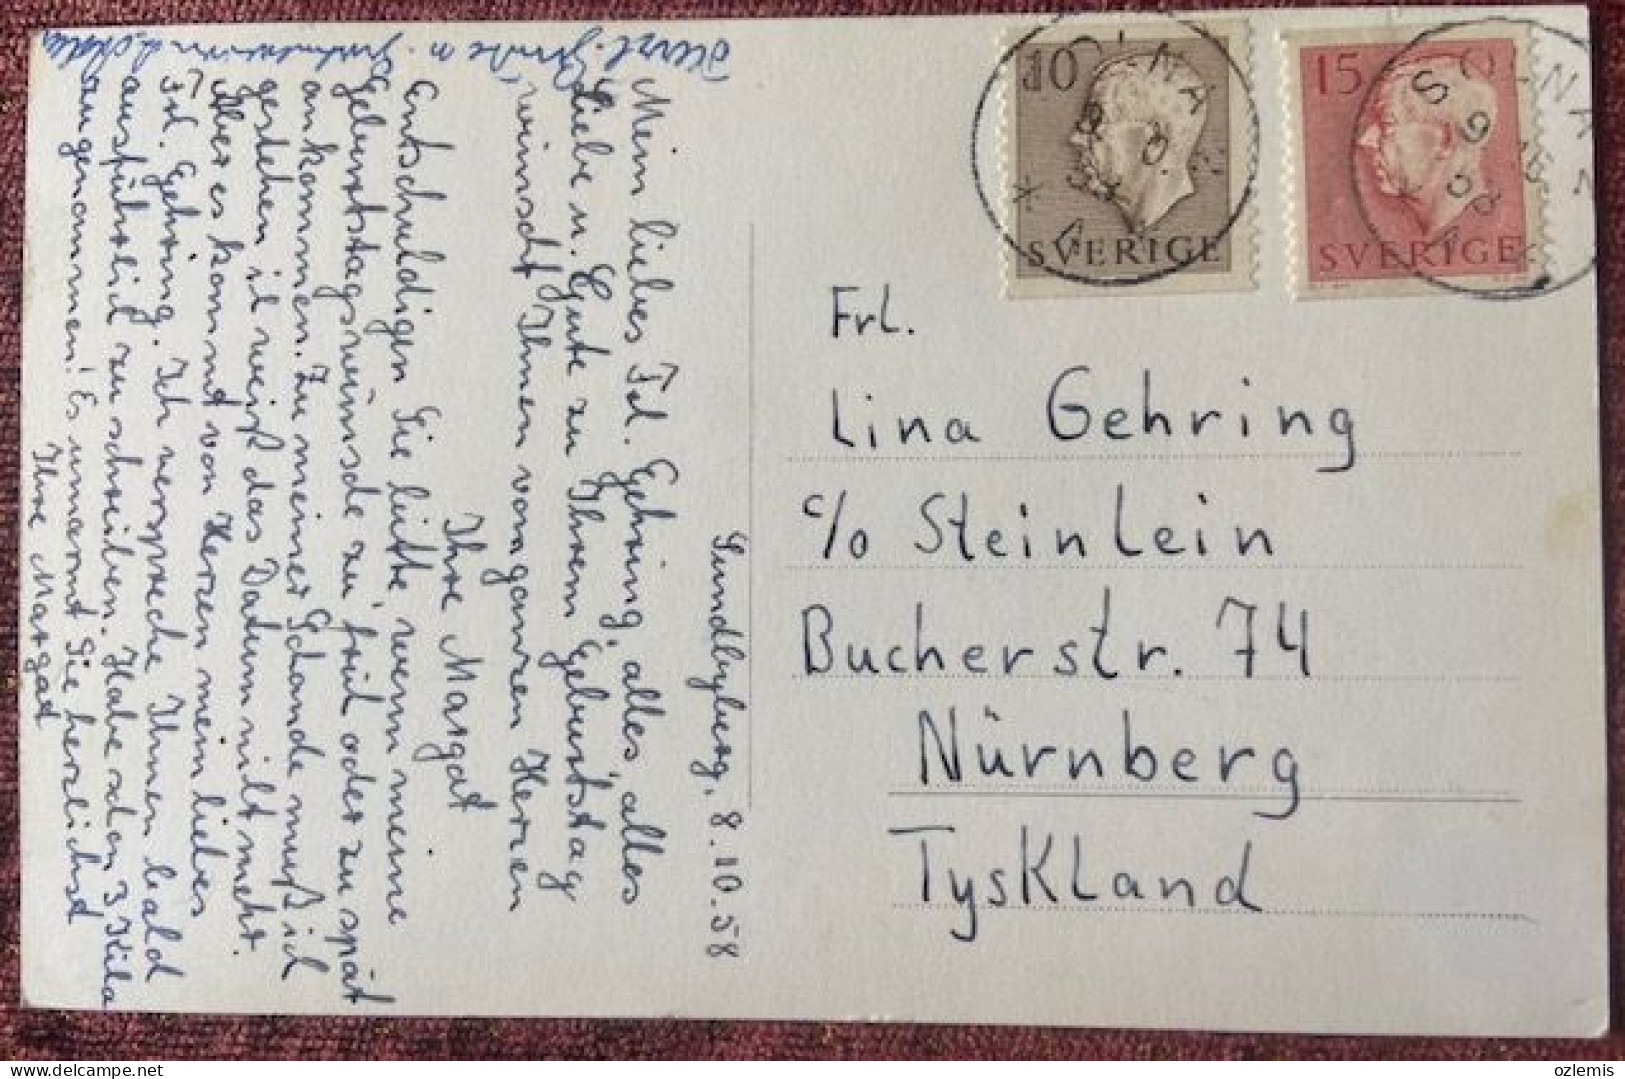 Sundbyberg, 8.10.58
Mein liebes Frl. Gehring, alles, alles
Liebe u. Gute zu Ihrem Geburtstag
wünscht Ihnen von ganzen Herzen
Ihre Margat
Entschuldigen Sie bitte, wenn meine
Geburtstagswünsche zu früh oder zu spät
ankommen. Zu meiner Schande muß ich
gestehen ich weiß das Datum nicht mehr.
Aber es kommt von Herzen mein liebes
Frl. Gehring. Ich verspreche Ihnen bald
ausführlich zu schreiben. Habe schon 3 Kilo
angenommen! Es umarmt Sie herzlichst
Ihre Margat
Herzl. Grüße u.
10
SVERIGE
15
SVERIGE
SOLNA
Frl.
Lina Gehring
c/o Steinlein
Bucherstr. 74
Nürnberg
Tyskland
delcampe.net
ozlemis